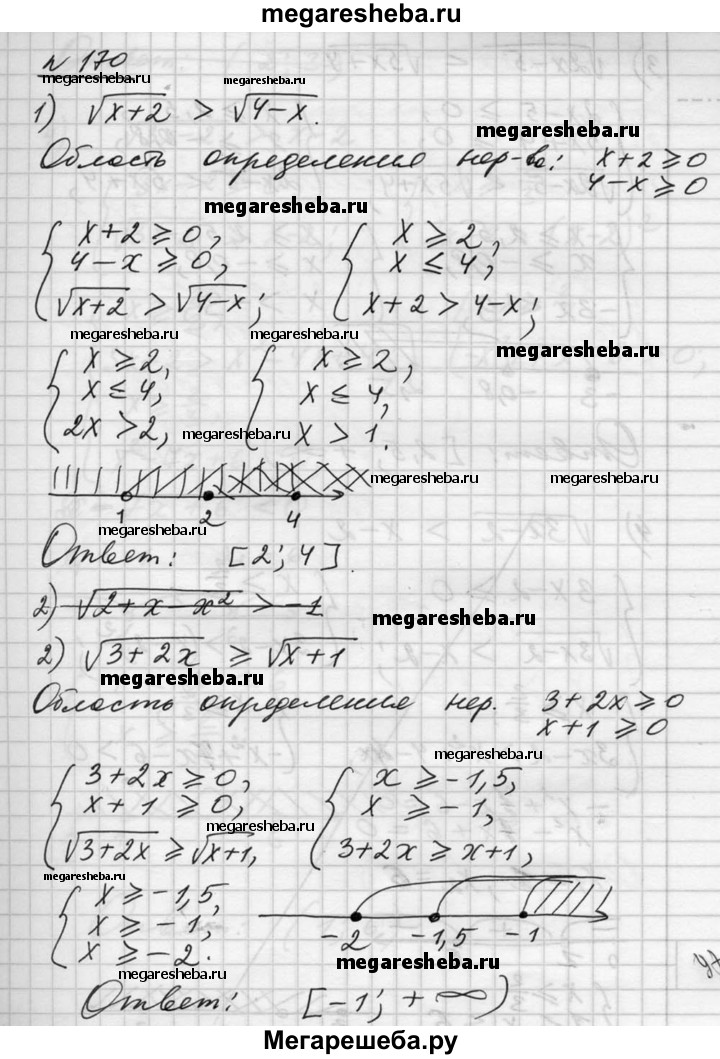 megaresheba.ru
№ 170
megaresheba.ru megaresheba.ru
1) √(x+2) > √(4-x).
megaresheba.ru
Область определения нер-ва: x+2 ⩾ 0
4-x ⩾ 0
megaresheba.ru
{ x+2 ⩾ 0, { x ⩾ 2,
4-x ⩾ 0, x ⩽ 4,
√(x+2) > √(4-x); x+2 > 4-x;
megaresheba.ru megaresheba.ru
megaresheba.ru
{ x ⩾ 2, { x ⩾ 2,
x ⩽ 4, x ⩽ 4,
2x > 2, x > 1.
megaresheba.ru
megaresheba.ru megaresheba.ru
1 2 4
megaresheba.ru
Ответ: [2; 4].
2) √(2+x-x²) > -1
megaresheba.ru
2) √(3+2x) ⩾ √(x+1)
megaresheba.ru
Область определения нер. 3+2x ⩾ 0
x+1 ⩾ 0
megaresheba.ru
{ 3+2x ⩾ 0, { x ⩾ -1,5,
x+1 ⩾ 0, x ⩾ -1,
megaresheba.ru
√(3+2x) ⩾ √(x+1), 3+2x ⩾ x+1,
megaresheba.ru
{ x ⩾ -1,5,
x ⩾ -1,
x ⩾ -2.
-2 -1,5 -1
megaresheba.ru
megaresheba.ru
Ответ: [-1; +∞)
Мегарешеба.ру